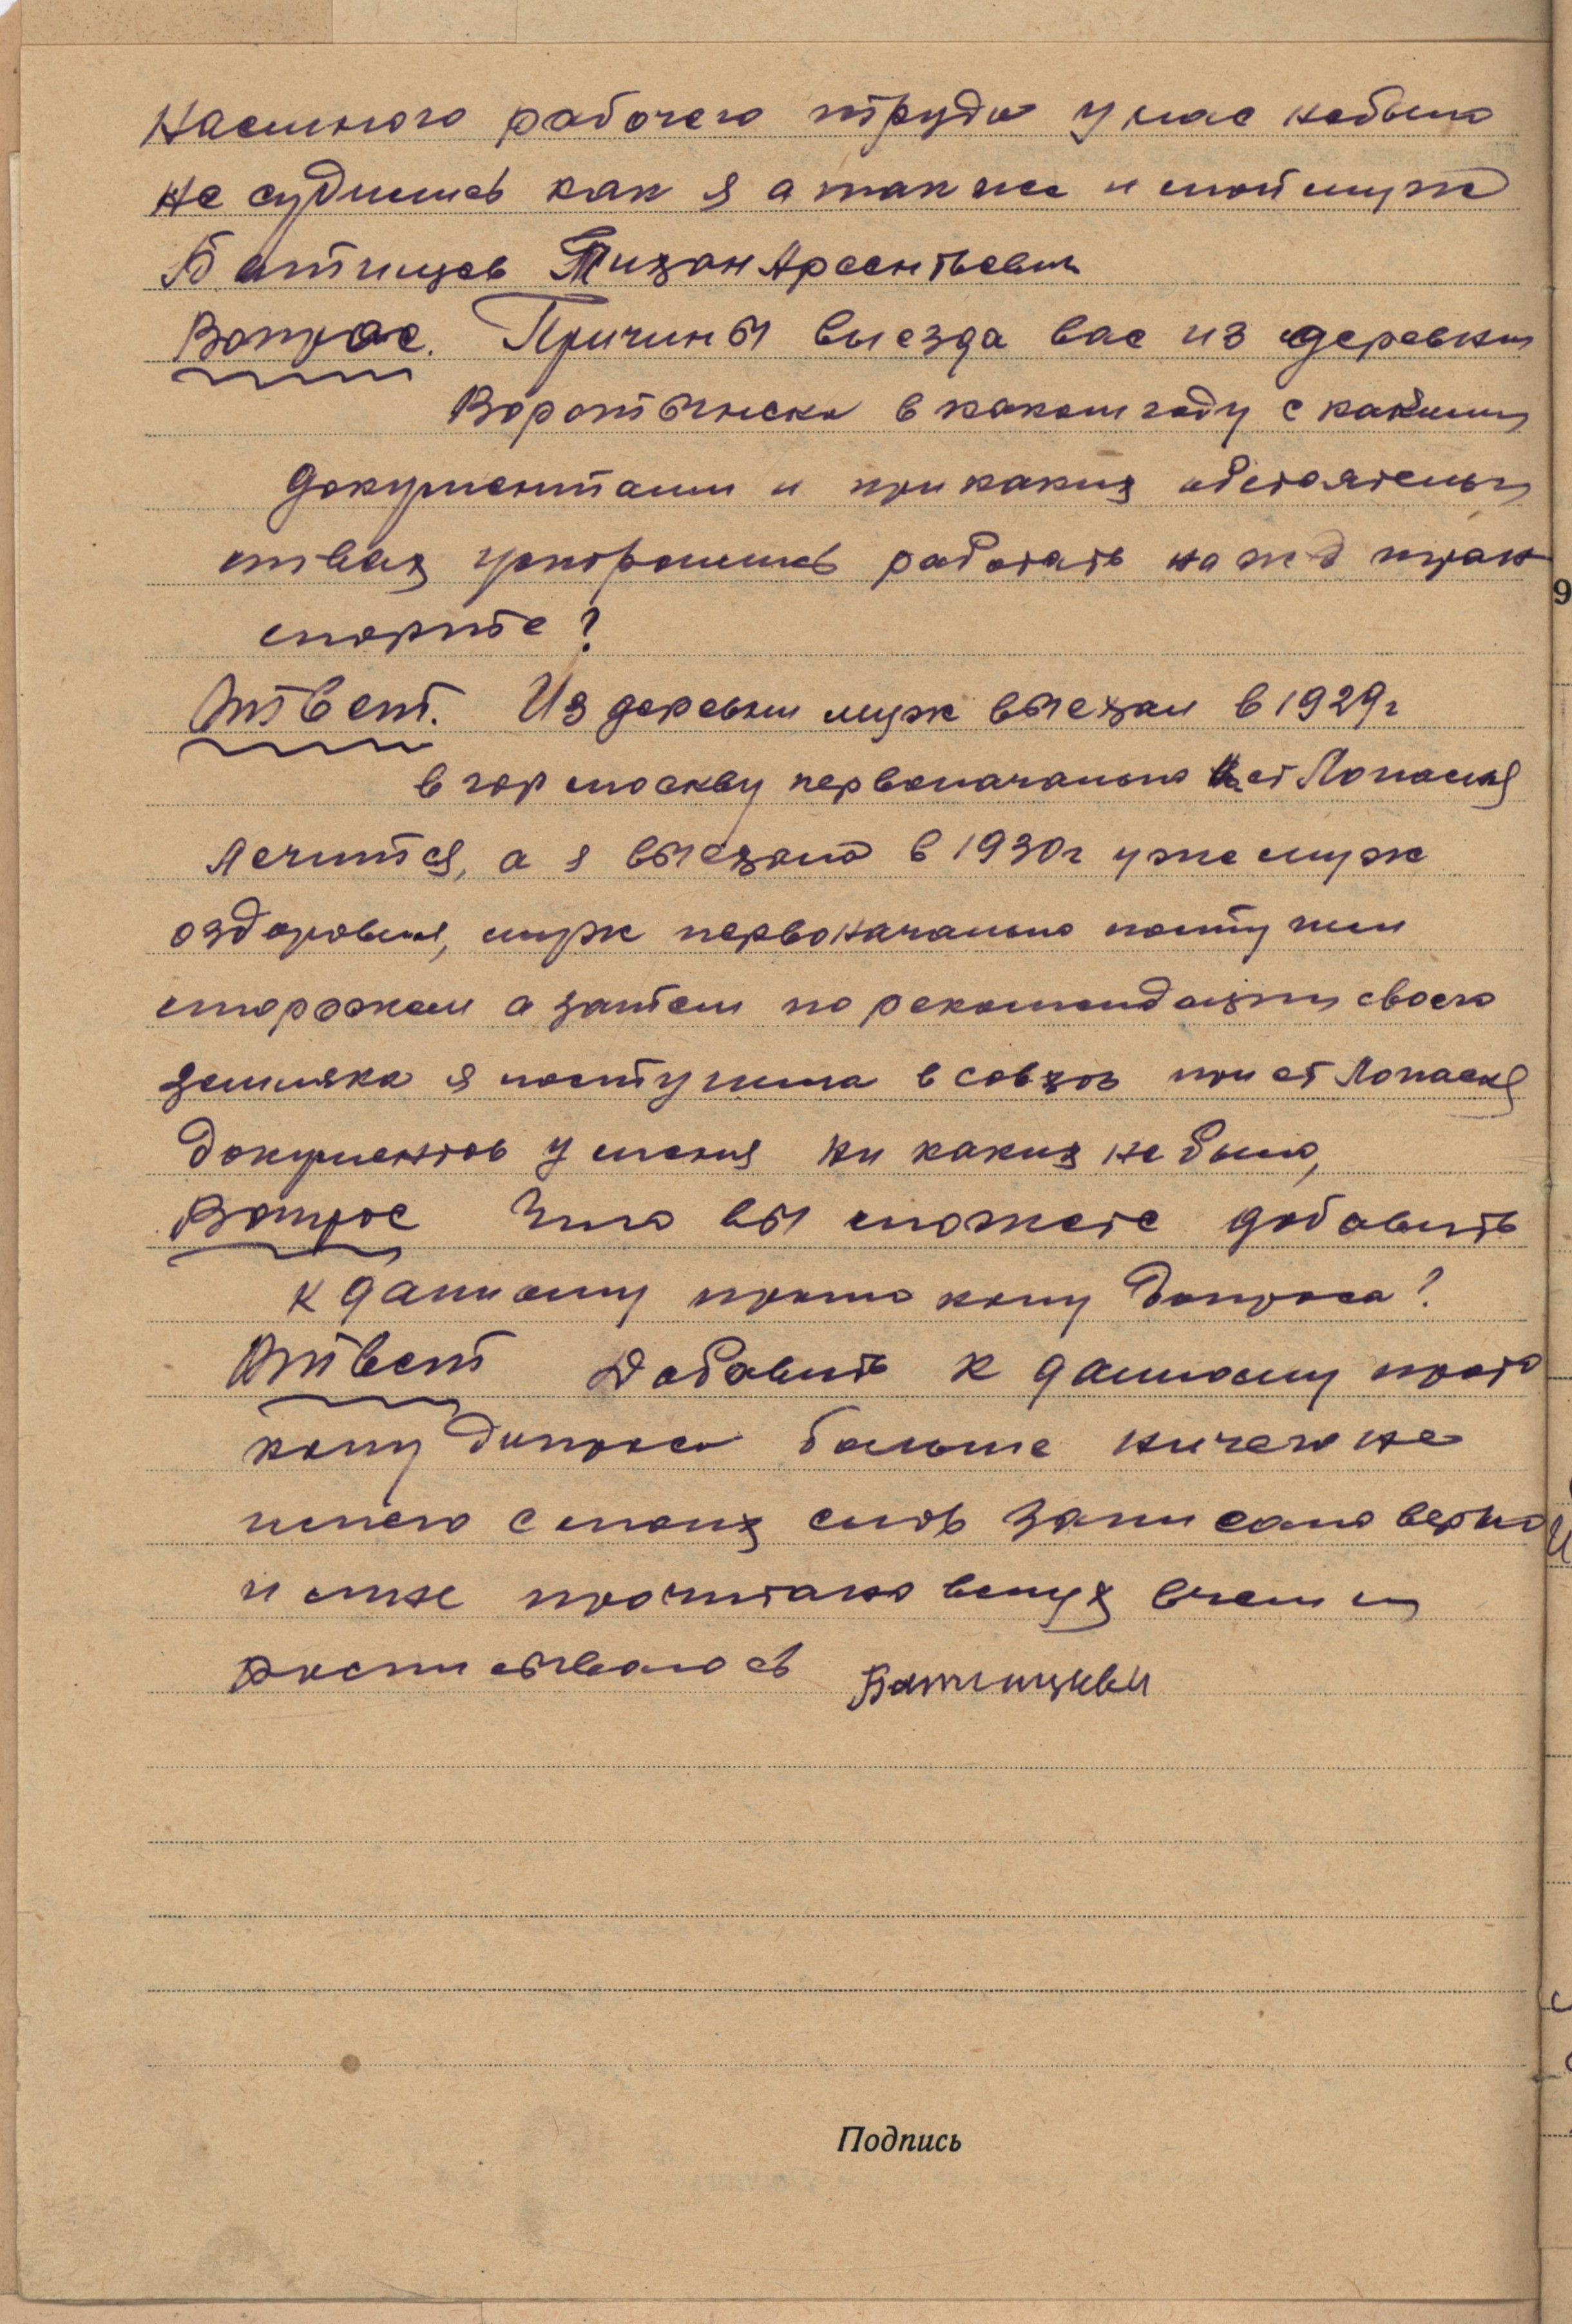 Наемного рабочего труда у нас небыло
не судились как я а также и мой муж
Батищев Тихон Арсентьевич
Вопрос. Причины выезда вас из деревни
Воротынска в каком году с какими
документами и при каких обстоятельс
твах устроились работать на ж д тран
спорте?
Ответ. Из деревни муж выехал в 1929 г
в гор москву первоначально ст Лопасня
лечится, а я выехала в 1930 г уже муж
оздоровился, муж первоначально поступил
сторожем а затем по рекомендации своего
земляка я поступила в совхоз при ст Лопасня
документов у меня ни каких не было,
Вопрос Что вы сможете добавить
к данному протоколу допроса?
Ответ Добавить к данному прото
колу допроса больше ничего не
имею с моих слов записано верно
и мне прочитано вслух в чем и
расписываюсь Батищева
Подпись